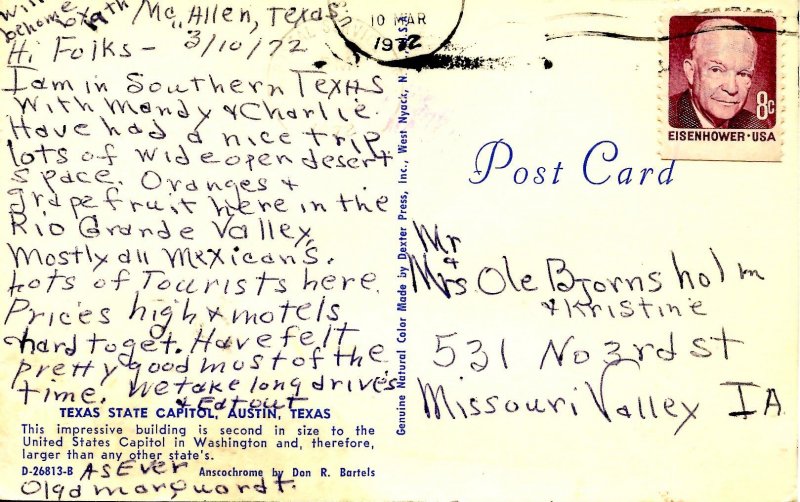 will
be home 20th
Mc Allen, Texas
Hi Folks - 3/10/72
I am in Southern Texas
With Mandy & Charlie.
Have had a nice trip
lots of wide open desert
space. Oranges &
grapefruit here in the
Rio Grande Valley,
Mostly all Mexicans.
Lots of Tourists here.
Prices high & motels
hard to get. Have felt
pretty good most of the
time. We take long drives
& Eat out
TEXAS STATE CAPITOL, AUSTIN, TEXAS
This impressive building is second in size to the
United States Capitol in Washington and, therefore,
larger than any other state's.
D-26813-B Anscochrome by Don R. Bartels
As Ever
Olga Marquardt.
Genuine Natural Color Made by Dexter Press, Inc., West Nyack, N.
10 MAR
1972
8c
EISENHOWER·USA
Post Card
Mr
&
Mrs Ole Bjornsholm
& Kristine
531 No 3rd St
Missouri Valley IA